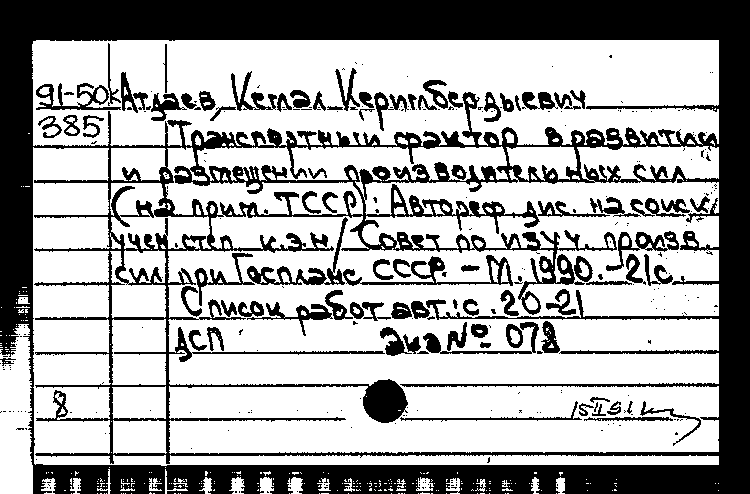 91-50к Атдаев, Кемал Керимбердыевич
385 Транспортный фактор в развитии
и размещении производительных сил
(на прим. ТССР): Автореф. дис. на соиск.
учен. степ. к.э.н. / Совет по изуч. произв.
сил при Госплане СССР. - М., 1990. - 21 с.
Список работ авт.: с. 20-21
ДСП Экз № 078
8 15 II 91